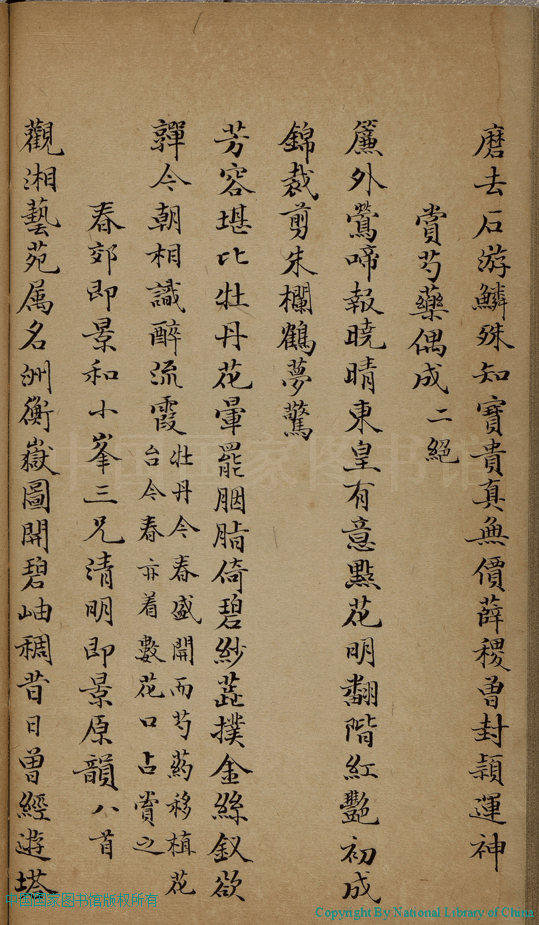 磨去石游鱗殊知寶貴真無價薛稷曾封穎運神
賞芍藥偶成二絕
簾外鶯啼報曉晴東皇有意點花明翻階紅艷初成
錦裁剪朱欄鶴夢驚
芳容堪比牡丹花暈罷胭脂倚碧紗蕋撲金絲釵欲
嚲今朝相識醉流霞牡丹今春盛開而芍药移植花
台今春亦着數花口占賞之
春郊即景和小峯三兄清明即景原韻八首
觀湘藝苑属名洲衡嶽圖開碧岫稠昔日曾經遊塔
中国国家图书馆
中国国家图书馆版权所有
Copyright By National Library of China